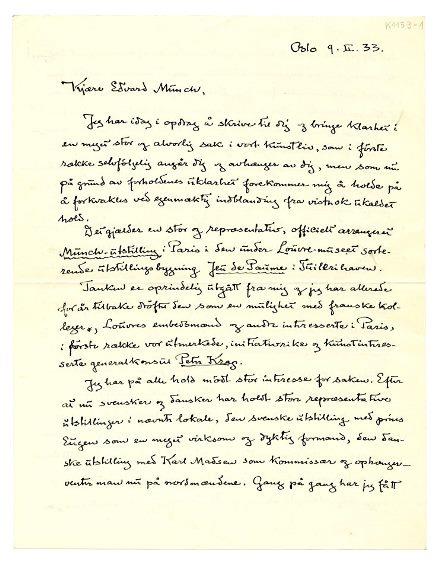 K1153-1
Oslo 9. II. 33.
Kjære Edvard Münch,
Jeg har idag i opdrag å skrive til dig og bringe klarhet i
en meget stor og alvorlig sak i vort kunstliv, som i förste
række selvfölgelig angår dig og avhænger av dig, men som nu
på grund av forholdenes uklarhet forekommer mig å holde på
å forkvakles ved egenmæktig indblanding fra vistnok ukaldet
hold.
Det gjælder en stor og representativ, officielt arrangert
Münch-utstilling i Paris i den under Louvre-museet sorte-
rende utstillingsbygning Jeu de Paume i Tuillerihaven.
Tanken er oprindelig utgått fra mig og jeg har allerede
for år tilbake dröftet den som en mulighet med franske kol-
leger, Louvres embedsmænd og andre interesserte i Paris,
i förste række vor utmerkede, initiativrike og kunstinteres-
serte generalkonsul Peter Krag.
Jeg har på alle hold mödt stor interesse for saken. Efter
at nu svensker og dansker har holdt stor representative
utstillinger i nævnte lokale, den svenske utstilling med prins
Eugen som en meget virksom og dyktig formand, den dan-
ske utstilling med Karl Madsen som kommissær og ophænger –
venter man nu på nordmændene. Gang på gang har jeg fått